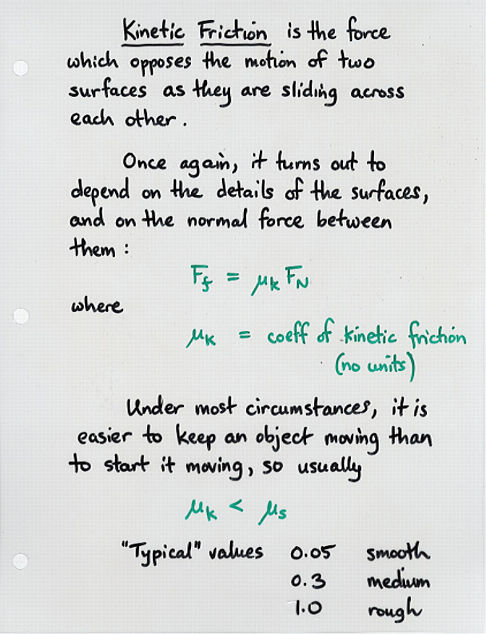 Kinetic Friction is the force
which opposes the motion of two
surfaces as they are sliding across
each other.
Once again, it turns out to
depend on the details of the surfaces,
and on the normal force between
them :
Ff = μk FN
where
μk = coeff of kinetic friction
(no units)
Under most circumstances, it is
easier to keep an object moving than
to start it moving, so usually
μk < μs
"Typical" values 0.05 smooth
0.3 medium
1.0 rough